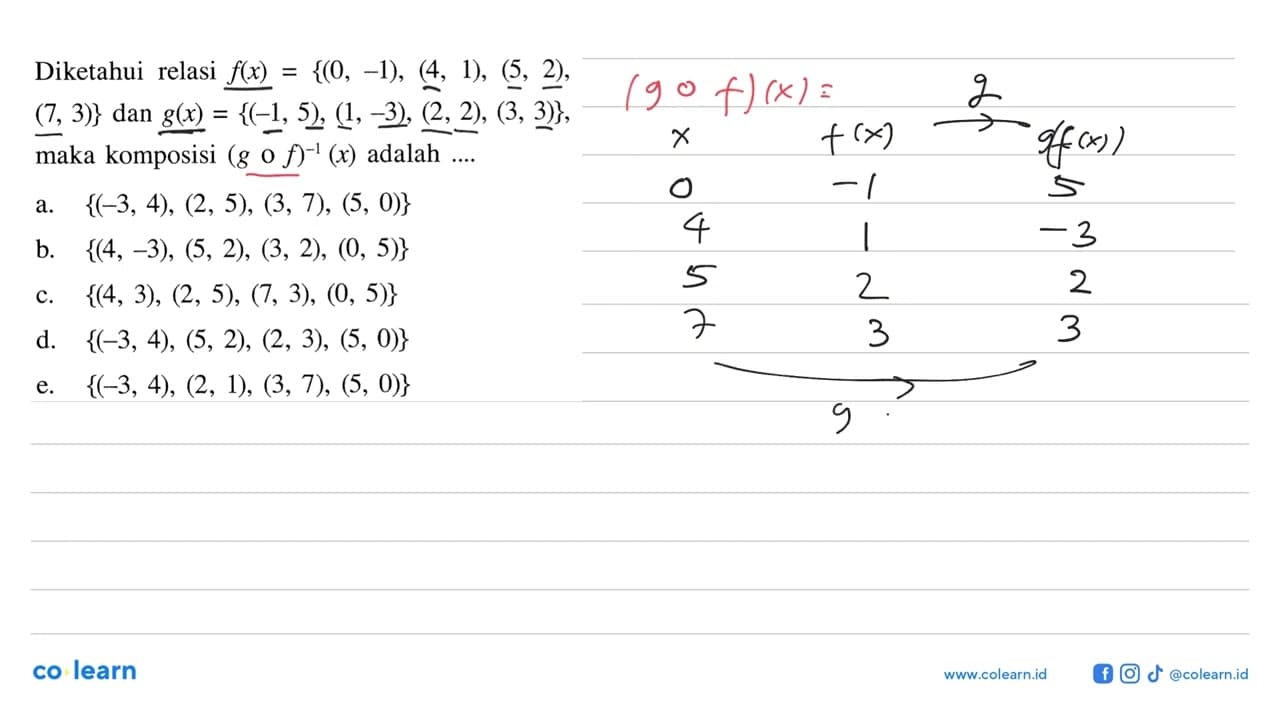 Diketahui relasi f(x) = {(0, –1), (4, 1), (5, 2),
(7, 3)} dan g(x) = {(–1, 5), (1, –3), (2, 2), (3, 3)},
maka komposisi (g o f)⁻¹ (x) adalah ....
a. {(–3, 4), (2, 5), (3, 7), (5, 0)}
b. {(4, –3), (5, 2), (3, 2), (0, 5)}
c. {(4, 3), (2, 5), (7, 3), (0, 5)}
d. {(–3, 4), (5, 2), (2, 3), (5, 0)}
e. {(–3, 4), (2, 1), (3, 7), (5, 0)}
(g o f)(x) =
g
x f(x) g(f(x))
0 –1 5
4 1 –3
5 2 2
7 3 3
g
co learn
www.colearn.id
@colearn.id